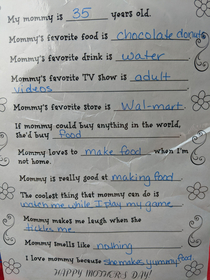 My mommy is 35 years old.
Mommy's favorite food is chocolate donuts
Mommy's favorite drink is water
Mommy's favorite TV show is adult
videos
Mommy's favorite store is Wal-mart
If mommy could buy anything in the world,
she'd buy food
Mommy loves to make food when I'm
not home.
Mommy is really good at making food
The coolest thing that mommy can do is
watch me while I play my game
Mommy makes me laugh when she
tickles me
Mommy smells like nothing
I love mommy because she makes yummy food
HAPPY MOTHER'S DAY